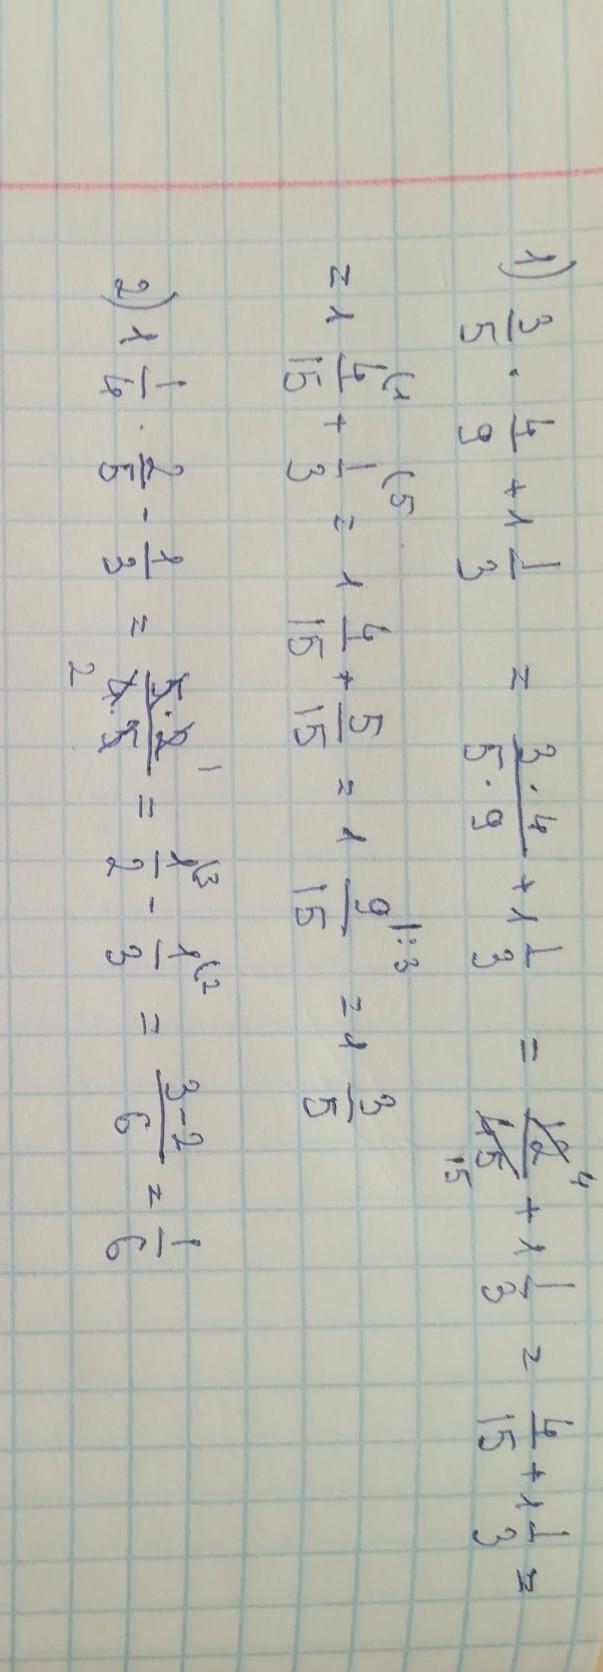 1) 3/5 · 4/9 + 1 1/3 = 3·4/5·9 + 1 1/3 = 12/45 4 15 + 1 1/3 = 4/15 + 1 1/3 =
= 1 4/15 (1 + 1/3 (5 = 1 4/15 + 5/15 = 1 9/15 |:3 = 1 3/5
2) 1 1/4 · 2/5 - 1/3 = 5·2/4·5 1 2 = 1/2 (3 - 1/3 (2 = 3-2/6 = 1/6